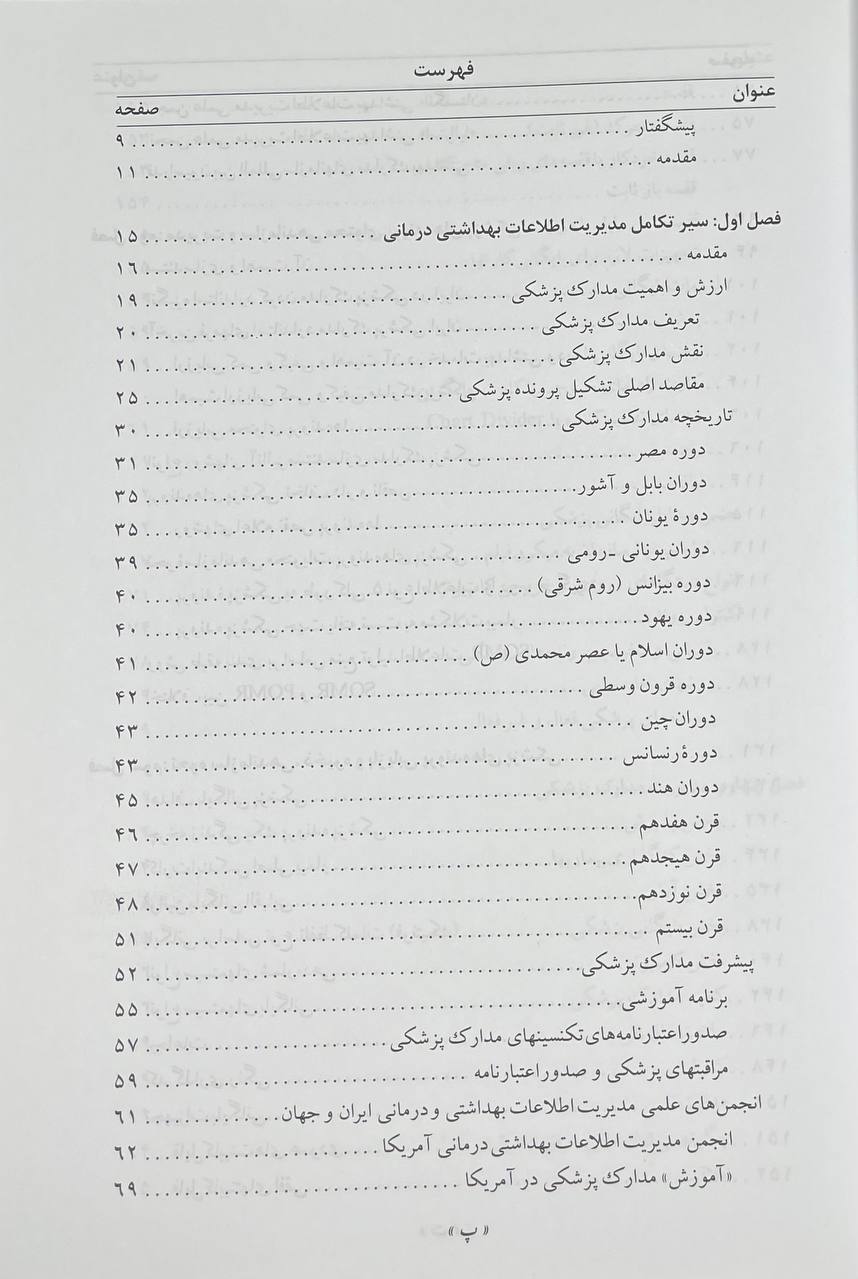 فهرست
عنوان صفحه
پیشگفتار ۹
مقدمه ۱۱
فصل اول: سیر تکامل مدیریت اطلاعات بهداشتی درمانی ۱۵
مقدمه ۱۶
ارزش و اهمیت مدارک پزشکی ۱۹
تعریف مدارک پزشکی ۲۰
نقش مدارک پزشکی ۲۱
مقاصد اصلی تشکیل پرونده پزشکی ۲۵
تاریخچه مدارک پزشکی ۳۰
دوره مصر ۳۱
دوران بابل و آشور ۳۵
دورۀ یونان ۳۵
دوران یونانی -رومی ۳۹
دوره بیزانس (روم شرقی) ۴۰
دوره یهود ۴۰
دوران اسلام یا عصر محمدی (ص) ۴۱
دوره قرون وسطی ۴۲
دوران چین ۴۳
دورۀ رنسانس ۴۳
دوران هند ۴۵
قرن هفدهم ۴۶
قرن هیجدهم ۴۷
قرن نوزدهم ۴۸
قرن بیستم ۵۱
پیشرفت مدارک پزشکی ۵۲
برنامه آموزشی ۵۵
صدور اعتبارنامه‌های تکنسینهای مدارک پزشکی ۵۷
مراقبتهای پزشکی و صدور اعتبارنامه ۵۹
انجمن‌های علمی مدیریت اطلاعات بهداشتی و درمانی ایران و جهان ۶۱
انجمن مدیریت اطلاعات بهداشتی درمانی آمریکا ۶۲
«آموزش» مدارک پزشکی در آمریکا ۶۹
« پ »